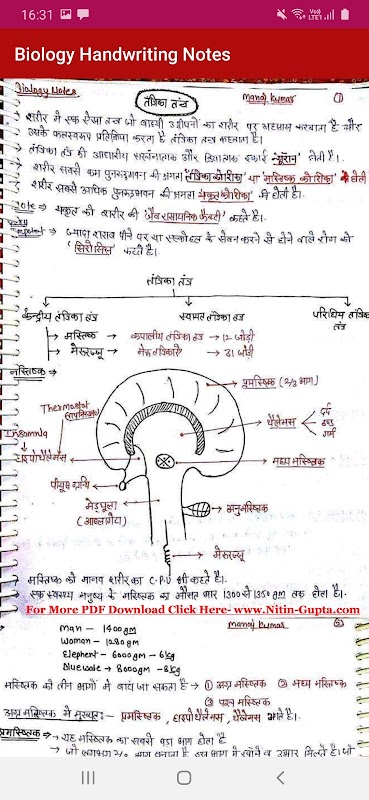 16:31
Biology Handwriting Notes
Biology Notes
तंत्रिका तन्त्र
Manoj Kumar
①
→ शरीर में एक ऐसा तन्त्र जो बाहरी उद्दीपनों का शरीर पर अहसास करवाता है और
उसके फलस्वरूप प्रतिक्रिया करता है तंत्रिका तन्त्र कहलाता है।
→ तंत्रिका तन्त्र की आधारीय संरचनात्मक और क्रियात्मक इकाई न्यूरान होती है।
→ शरीर सबसे कम पुनरुद्भवन की क्षमता तंत्रिका कोशिका या मस्तिष्क कोशिका में होती
शरीर सबसे अधिक पुनरुद्भवन की क्षमता यकृत कोशिका में होती है।
Note → यकृत को शरीर की जैव रासायनिक फैक्ट्री कहते है।
ज्यादा शराब पीने पर या एल्कोहल के सेवन करने से होने वाले रोग को
सिरोसिस कहते है।
तंत्रिका तंत्र
केन्द्रीय तंत्रिका तंत्र
स्वायत्त तंत्रिका तंत्र
परिधीय तंत्रिका तंत्र
→ मस्तिष्क → कपालीय तंत्रिका तंत्र → 12 जोड़ी
→ मेरूरज्जू → मेरू तंत्रिकाएँ → 31 जोड़ी
मस्तिष्क →
प्रमस्तिष्क (2/3 भाग)
Thermostat
थैलेमस
दर्द
ठण्ड
गर्मी
Insomnia
हाइपोथैलेमस
मध्य मस्तिष्क
पीयूष ग्रन्थि
मेड्यूला
अनुमस्तिष्क
मेरूरज्जू
→ मस्तिष्क को मानव शरीर का C.P.U भी कहते है।
एक स्वस्थ मनुष्य के मस्तिष्क का औसत भार 1300 से 1350 gm तक होता है।
For More PDF Download Click Here- www.Nitin-Gupta.com
Man - 1400 gm
Manoj Kumar
②
Woman - 1280 gm
Elephent - 6000 gm - 6 kg
Blue wale → 8000 gm - 8 kg
मस्तिष्क को तीन भागों में बांटा जा सकता है → ① अग्र मस्तिष्क ② मध्य मस्तिष्क
③ पश्च मस्तिष्क
अग्र मस्तिष्क में मुख्यतः - प्रमस्तिष्क, हाइपोथैलेमस, थैलेमस आते है।
प्रमस्तिष्क → → यह मस्तिष्क का सबसे बड़ा भाग होता है